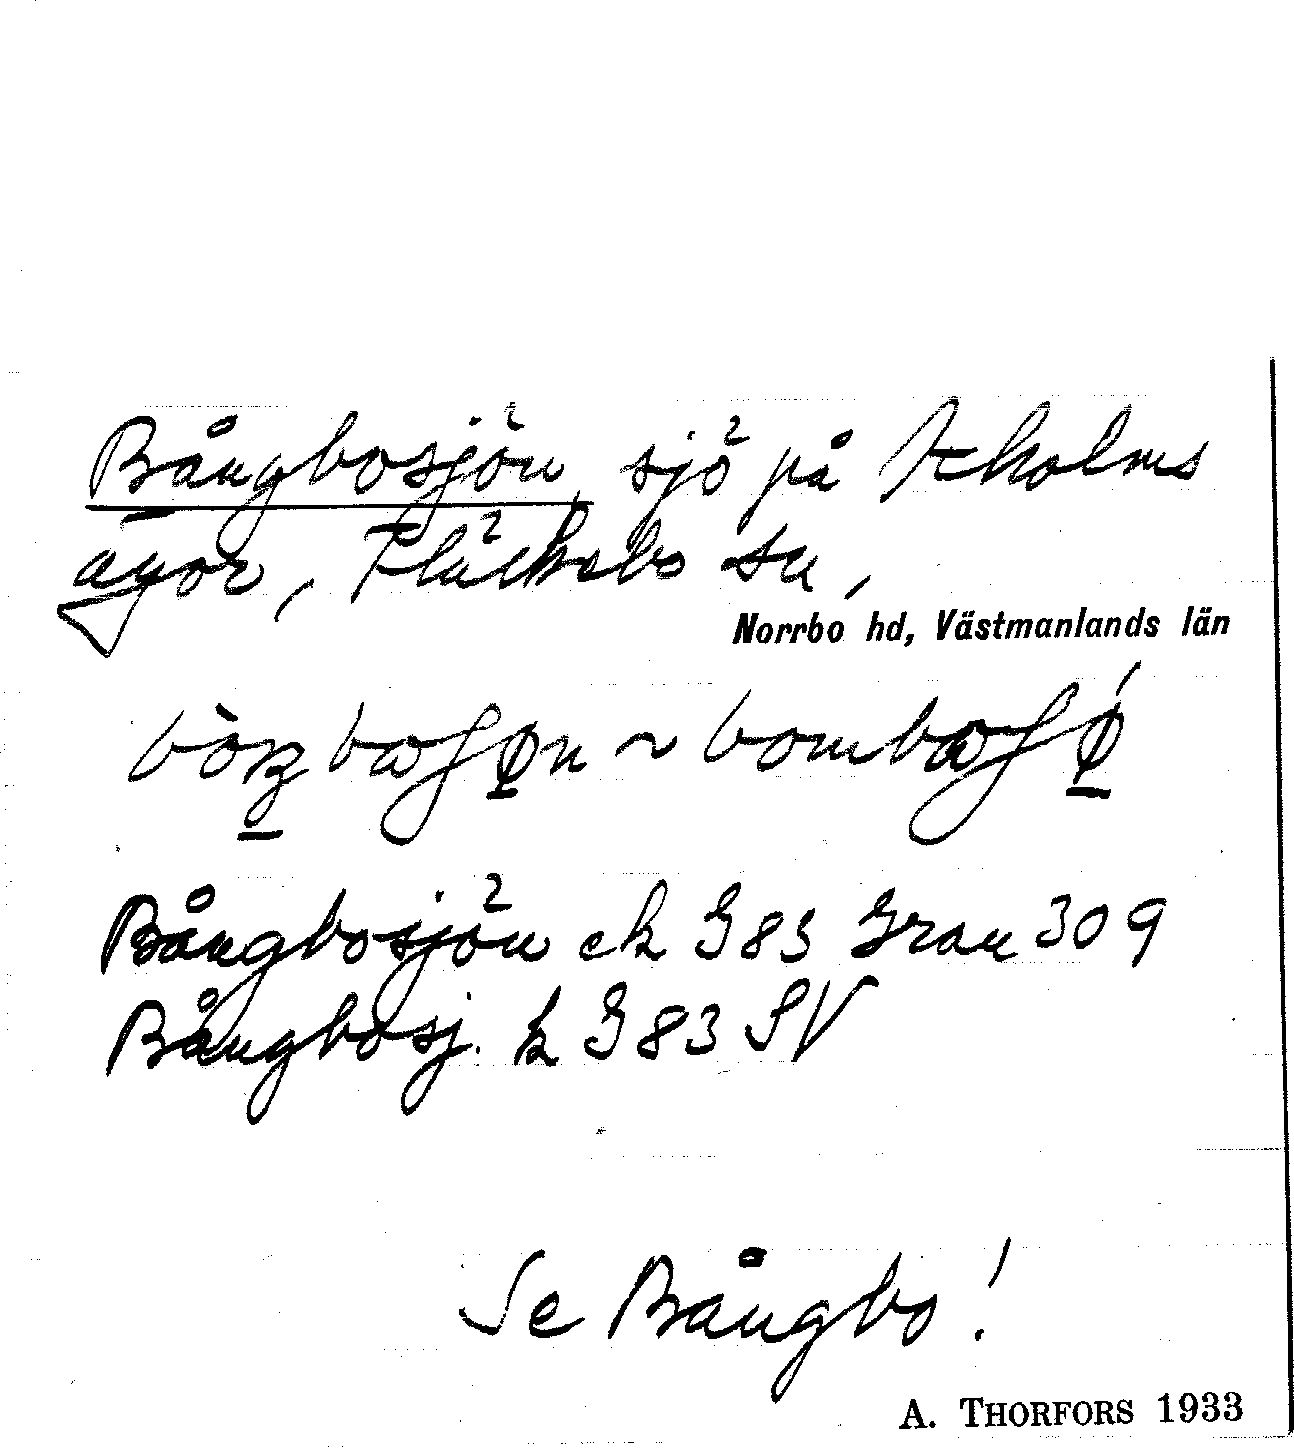 Bångbosjön, sjö på Ekholms
ägor, Fläckebo sn,
Norrbo hd, Västmanlands län
Bångbosjön ek G83 Gran 309
Bångbosj. k G83 SV
Se Bångbo!
A. THORFORS 1933